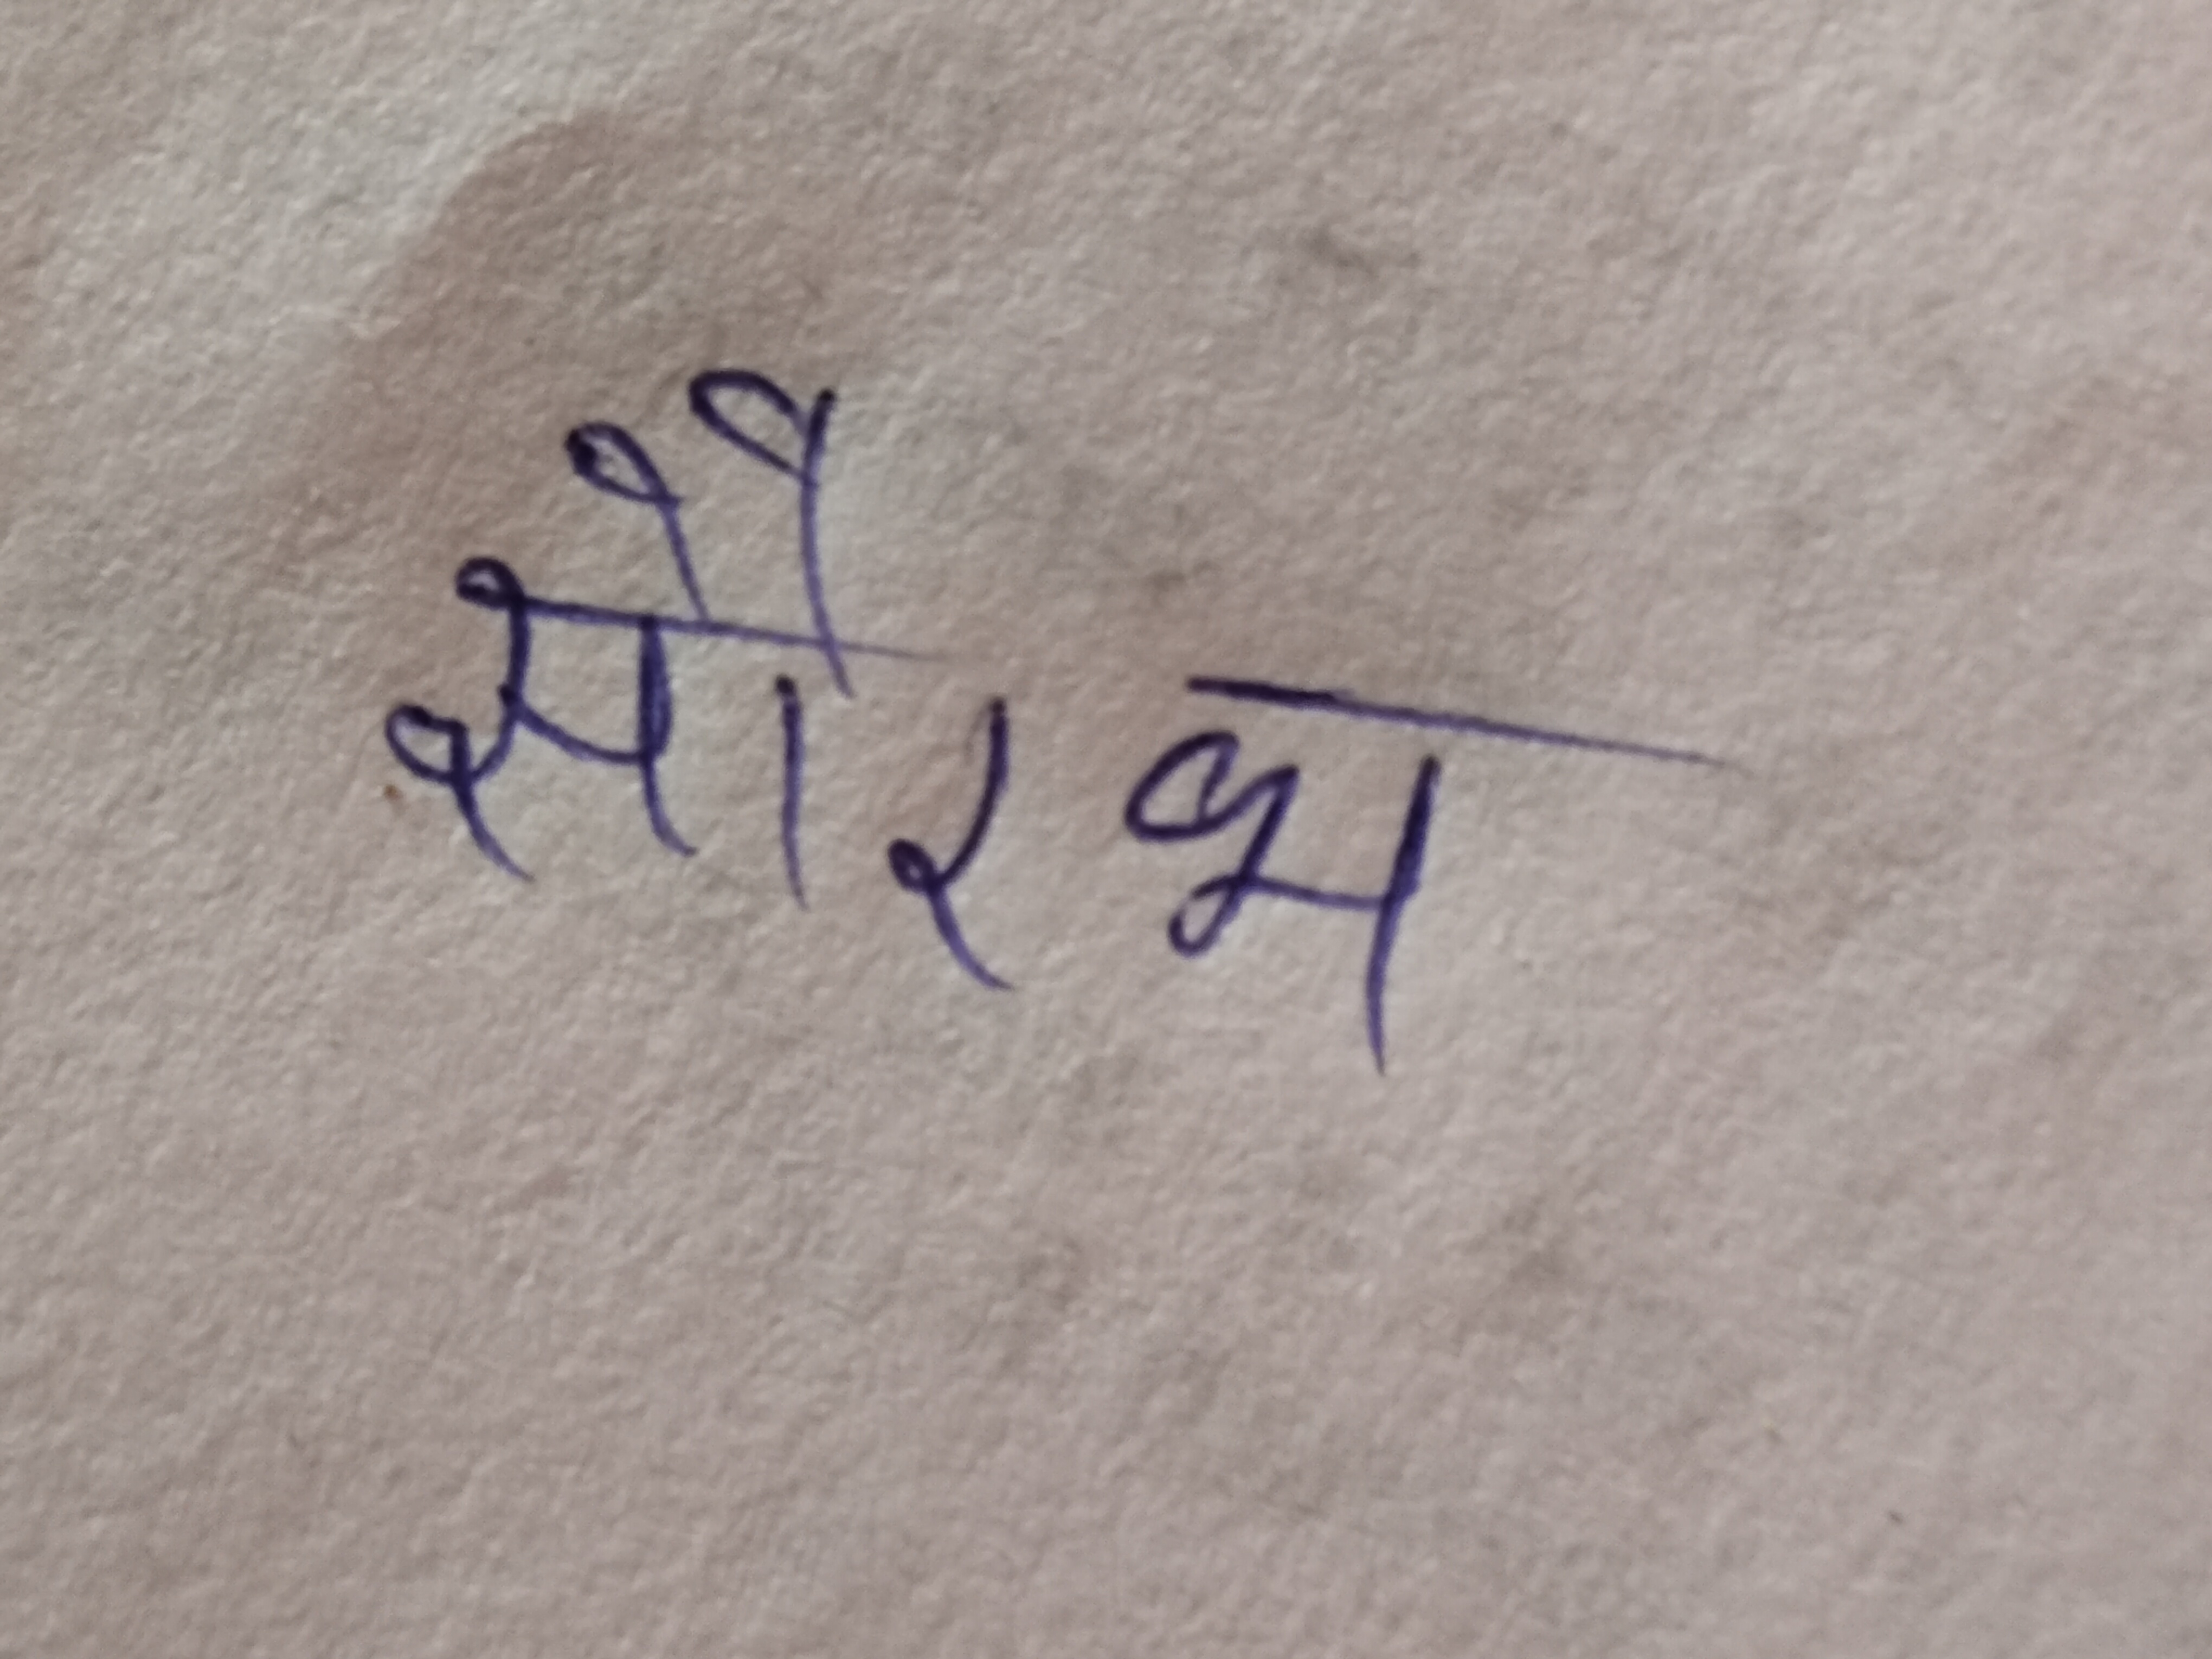 सौरभ